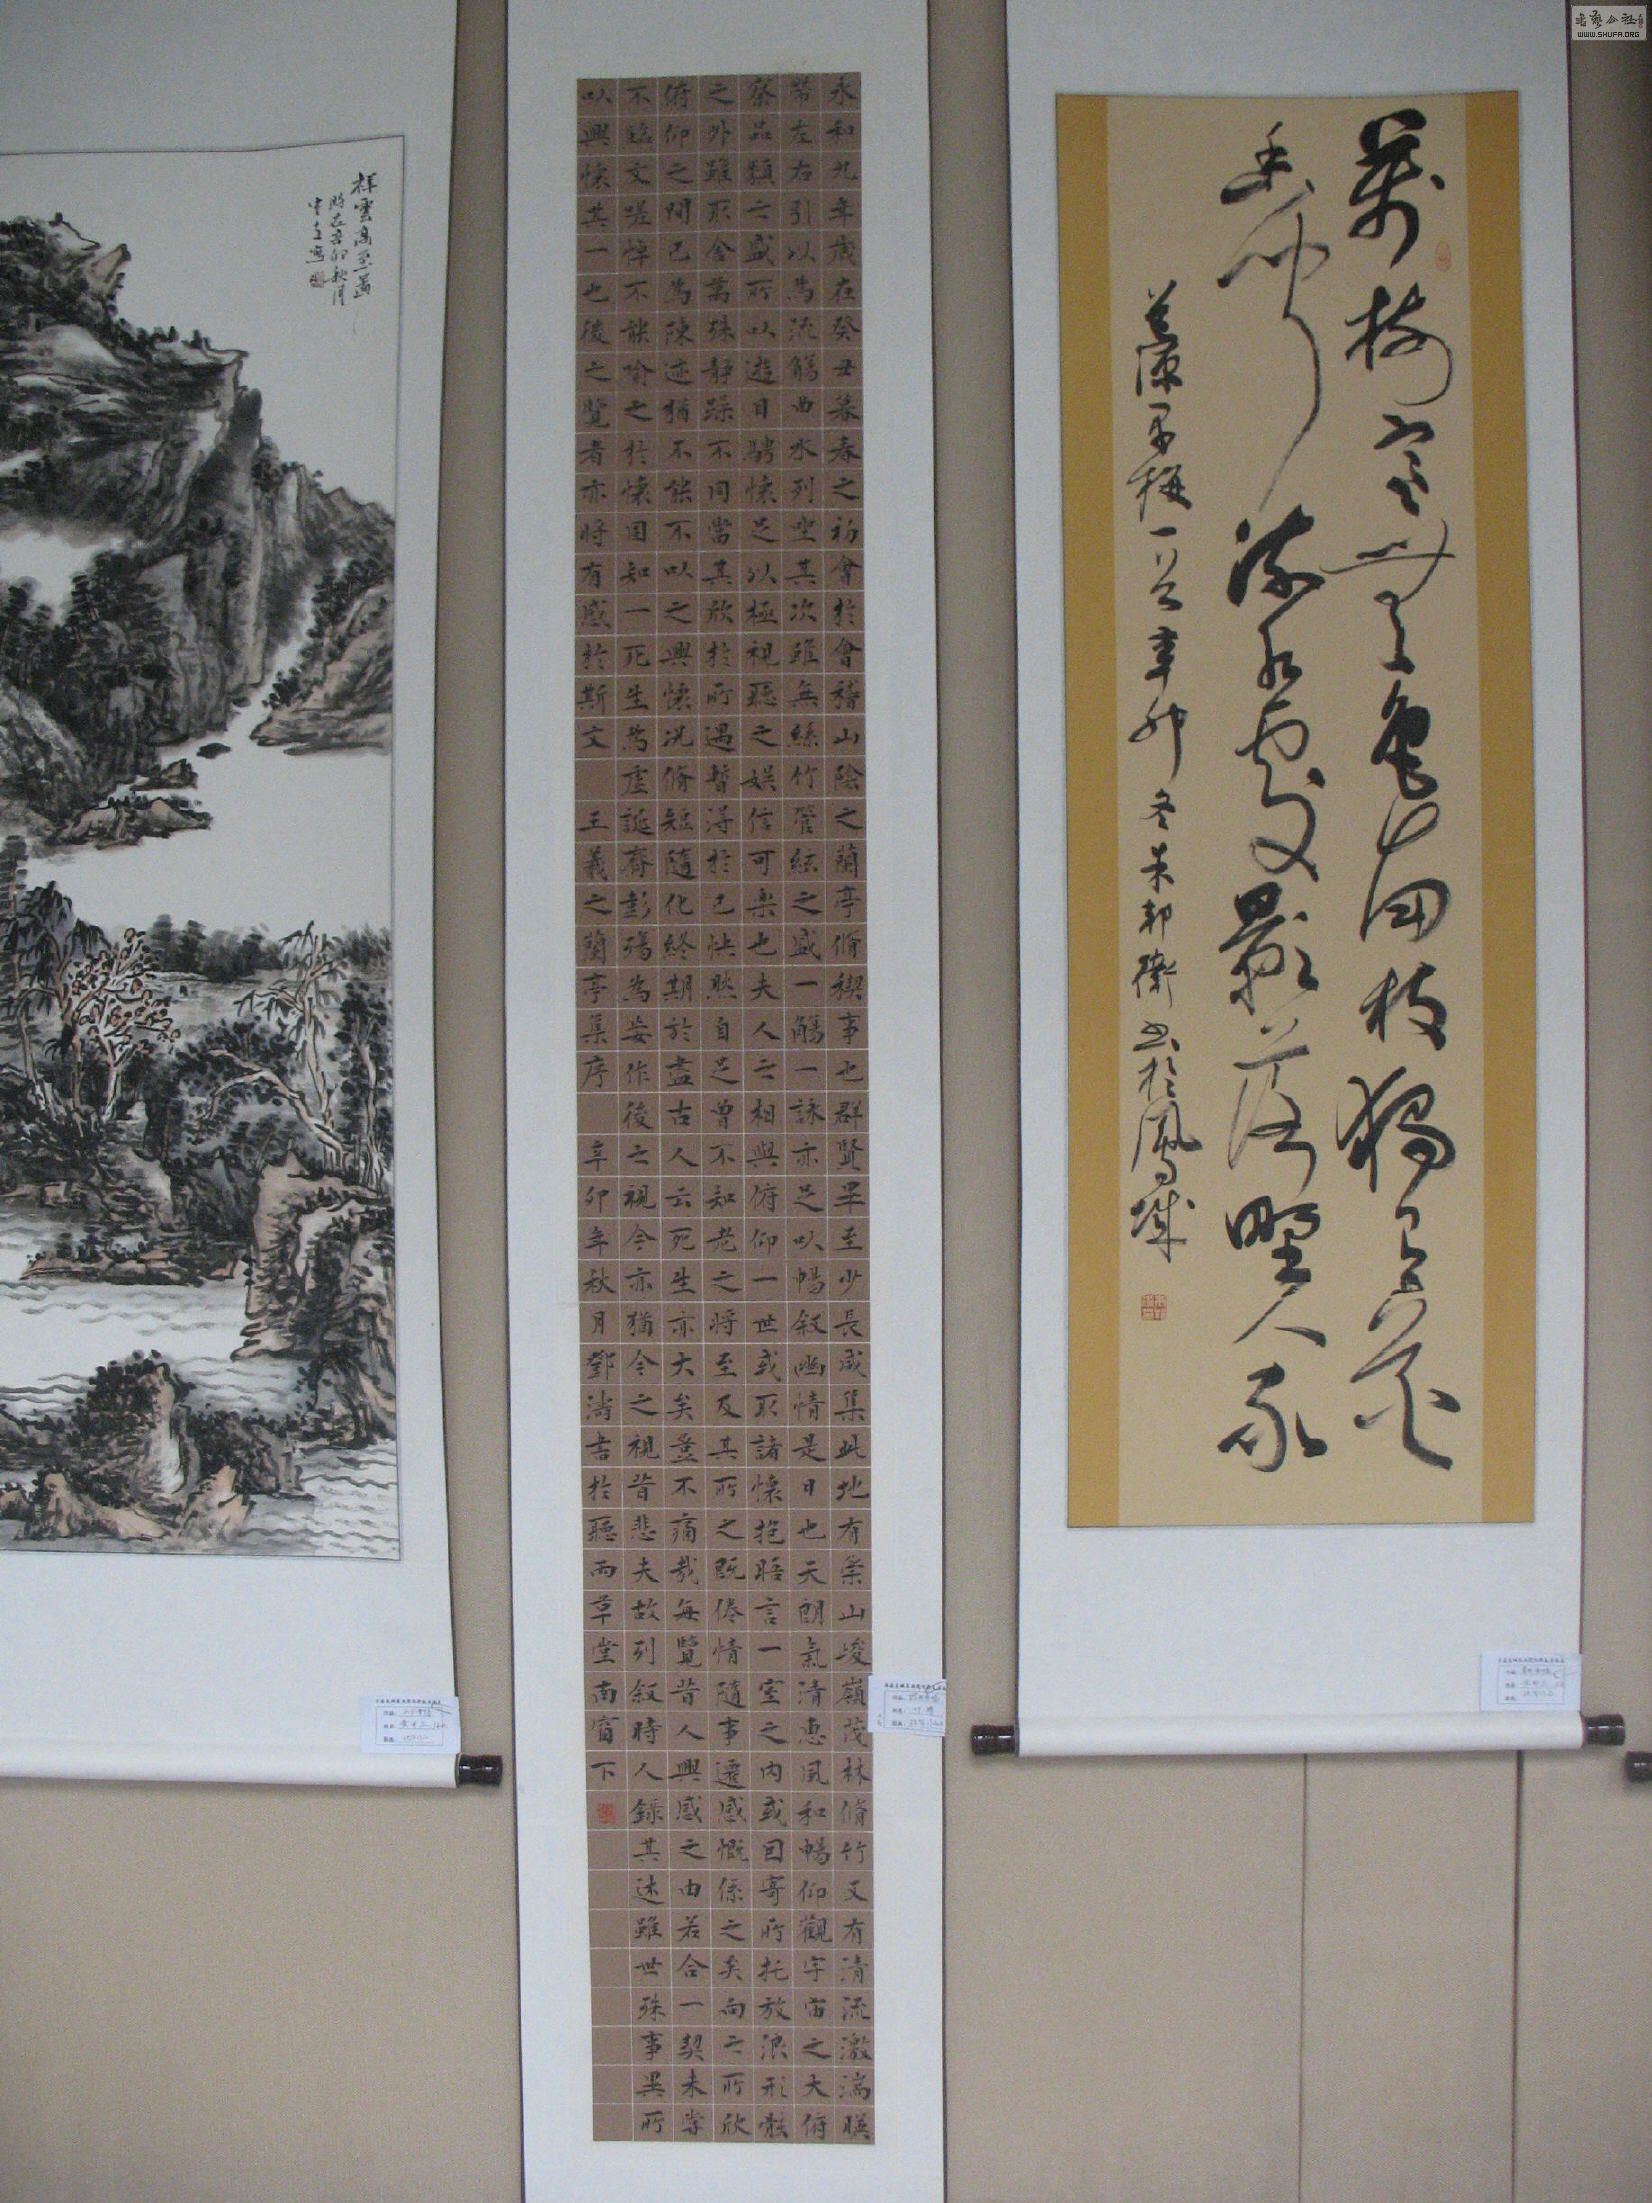 书艺公社
WWW.SHUFA.ORG
萬樹寒無色南枝獨有花
香聞流水處影落野人家
道源早梅一首辛卯冬朱邦衛书於鳳城
永和九年歲在癸丑暮春之初會於會稽山陰之蘭亭脩稧事也群賢畢至少長咸集此地有崇山峻嶺茂林脩竹又有清流激湍暎
帶左右引以為流觴曲水列坐其次雖無絲竹管絃之盛一觴一詠亦足以暢叙幽情是日也天朗氣清惠風和暢仰觀宇宙之大俯
察品類之盛所以遊目騁懷足以極視聽之娛信可樂也夫人之相與俯仰一世或取諸懷抱晤言一室之內或因寄所托放浪形骸
之外雖取舍萬殊靜躁不同當其欣於所遇暫得於己快然自足曾不知老之將至及其所之既倦情隨事遷感慨係之矣向之所欣
俯仰之間已為陳迹猶不能不以之興懷況脩短隨化終期於盡古人云死生亦大矣豈不痛哉每覽昔人興感之由若合一契未嘗
不臨文嗟悼不能喻之於懷固知一死生為虛誕齊彭殤為妄作後之視今亦猶今之視昔悲夫故列叙時人錄其述雖世殊事異所
以興懷其一也後之覽者亦將有感於斯文 王羲之蘭亭集序 辛卯年秋月鄧濤書於聽雨草堂南窗下
祥雲高至圖
時在辛卯秋月
中立寫